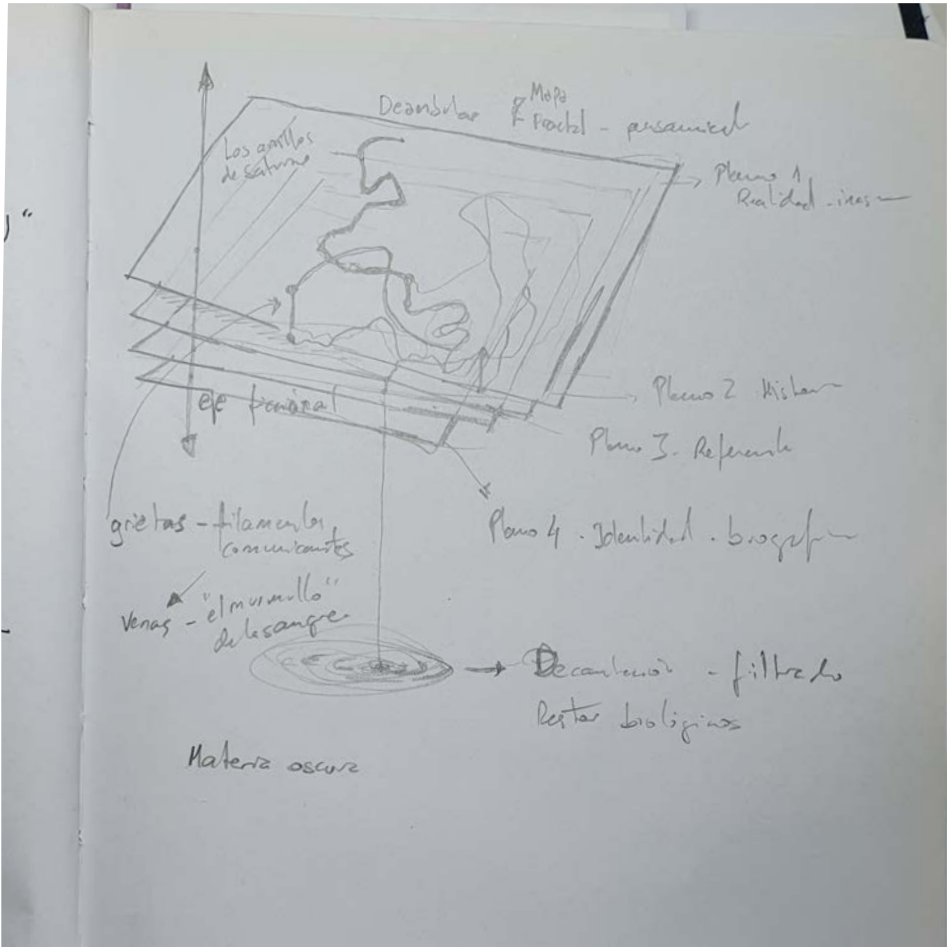 Deambular
Mapa
Fractal - pensamiento
Los anillos
de Saturno
Plano 1
Realidad -
Plano 2
Plano 3 -
Plano 4 - Identidad -
eje
grietas - filamentos
comunicantes
Venas - "el murmullo"
de la sangre
Decantación - filtrado
Restos biológicos
Materia oscura